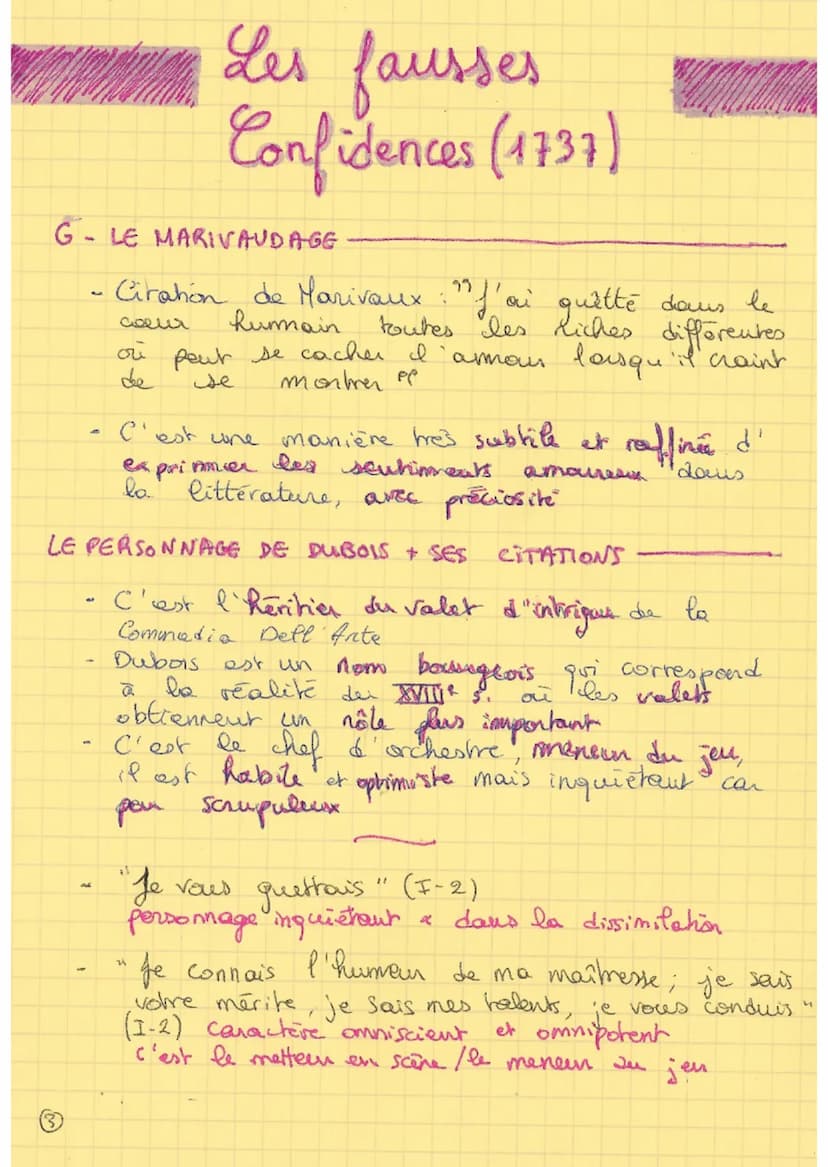 Les fausses
Confidences (1737)
G - LE MARIVAUDAGE
- Citation de Marivaux : "J'ai guetté dans le
coeur humain toutes les niches différentes
où peut se cacher l'amour lorsqu'il craint
de se montrer"
- C'est une manière très subtile et raffinée d'
exprimer les sentiments amoureux dans
la littérature, avec préciosité
LE PERSONNAGE DE DUBOIS + SES CITATIONS
- C'est l'héritier du valet d'intrigue de la
Commedia Dell'Arte
- Dubois est un nom bourgeois qui correspond
à la réalité du XVIIIe s. où les valets
obtiennent un rôle plus important
- C'est le chef d'orchestre, meneur du jeu,
il est habile et optimiste mais inquiétant car
peu scrupuleux
- "Je vous guettais" (I-2)
personnage inquiétant & dans la dissimilation
- "Je connais l'humeur de ma maîtresse ; je sais
votre mérite, je sais mes talents, je vous conduis"
(I-2) caractère omniscient et omnipotent
c'est le metteur en scène / le meneur du jeu
3